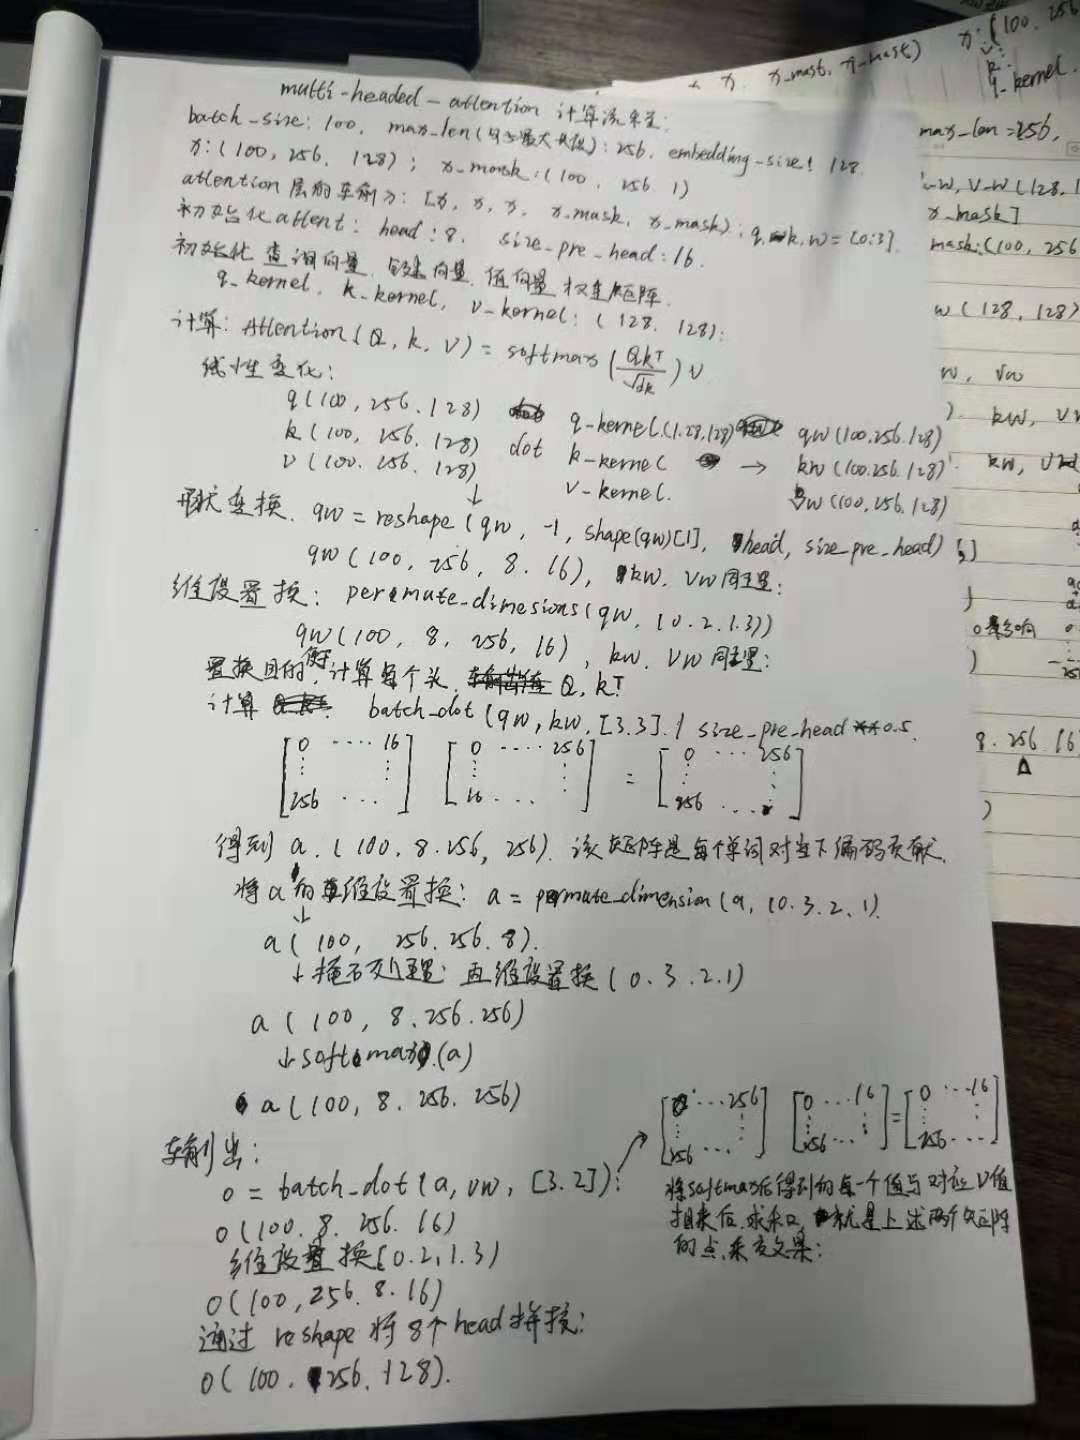 multi-headed-attention 计算流程:
batch_size: 100, max_len(句子最大长度): 256, embedding-size: 128
x: (100, 256, 128); x_mask: (100, 256, 1)
attention 层的输入: [x, x, x, x_mask, x_mask]; q, k, w = [0:3].
初始化 attent: head: 8, size_pre_head: 16.
初始化 查询向量, 键向量, 值向量 权重矩阵.
q_kernel, k_kernel, v_kernel: (128, 128);
计算: Attention(Q, k, V) = softmax(QkT/√dk)V
线性变化:
q(100, 256, 128) q-kernel(128,128) qw(100,256,128)
k(100, 256, 128) dot k-kernel → kw(100,256,128)
v(100, 256, 128) v-kernel. vw(100,256,128)
↓
形状变换. qw = reshape(qw, -1, shape(qw)[1], head, size_pre_head)
qw(100, 256, 8, 16), kw, vw同理:
维度置换: peremute_dimesions(qw, (0.2.1.3))
qw(100, 8, 256, 16), kw, vw同理:
置换目的, 计算每个头, Q, kT
计算 batch_dot(qw, kw, [3.3]) / size_pre_head **0.5.
[0 ···· 16 [0 ···· 256 [0 ··· 256
256 ···] 16 ···] = 256 ···]
得到 a. (100, 8, 256, 256). 该矩阵是每个单词对当下编码贡献.
将a的维度置换: a = permute_dimension(a, (0.3.2.1).
↓
a(100, 256.256.8).
↓掩码处理; 再维度置换(0.3.2.1)
a(100, 8.256.256)
↓softmax.(a)
a(100, 8.256.256)
输出:
o = batch_dot(a, vw, [3.2]); → [0 ··· 256 [0 ··· 16 [0 ··· 16
256 ···] 256 ···] = 256 ···]
将softmax后得到的每一个值与对应V值
相乘后, 求和, 就是上述两个矩阵
的点乘效果:
o(100, 8, 256, 16)
维度置换(0.2,1.3)
o(100, 256, 8.16)
通过 reshape 将8个head拼接:
o(100, 256, 128).
x, x_mask, x_mask) x: (100, 256
k:
q-kernel.
max_len=256,
-w, v-w(128, 1
x_mask]
mask:(100, 256
w(128, 128)
w, vw
kw, vw
kw, vw
0 影响
8. 256. 16